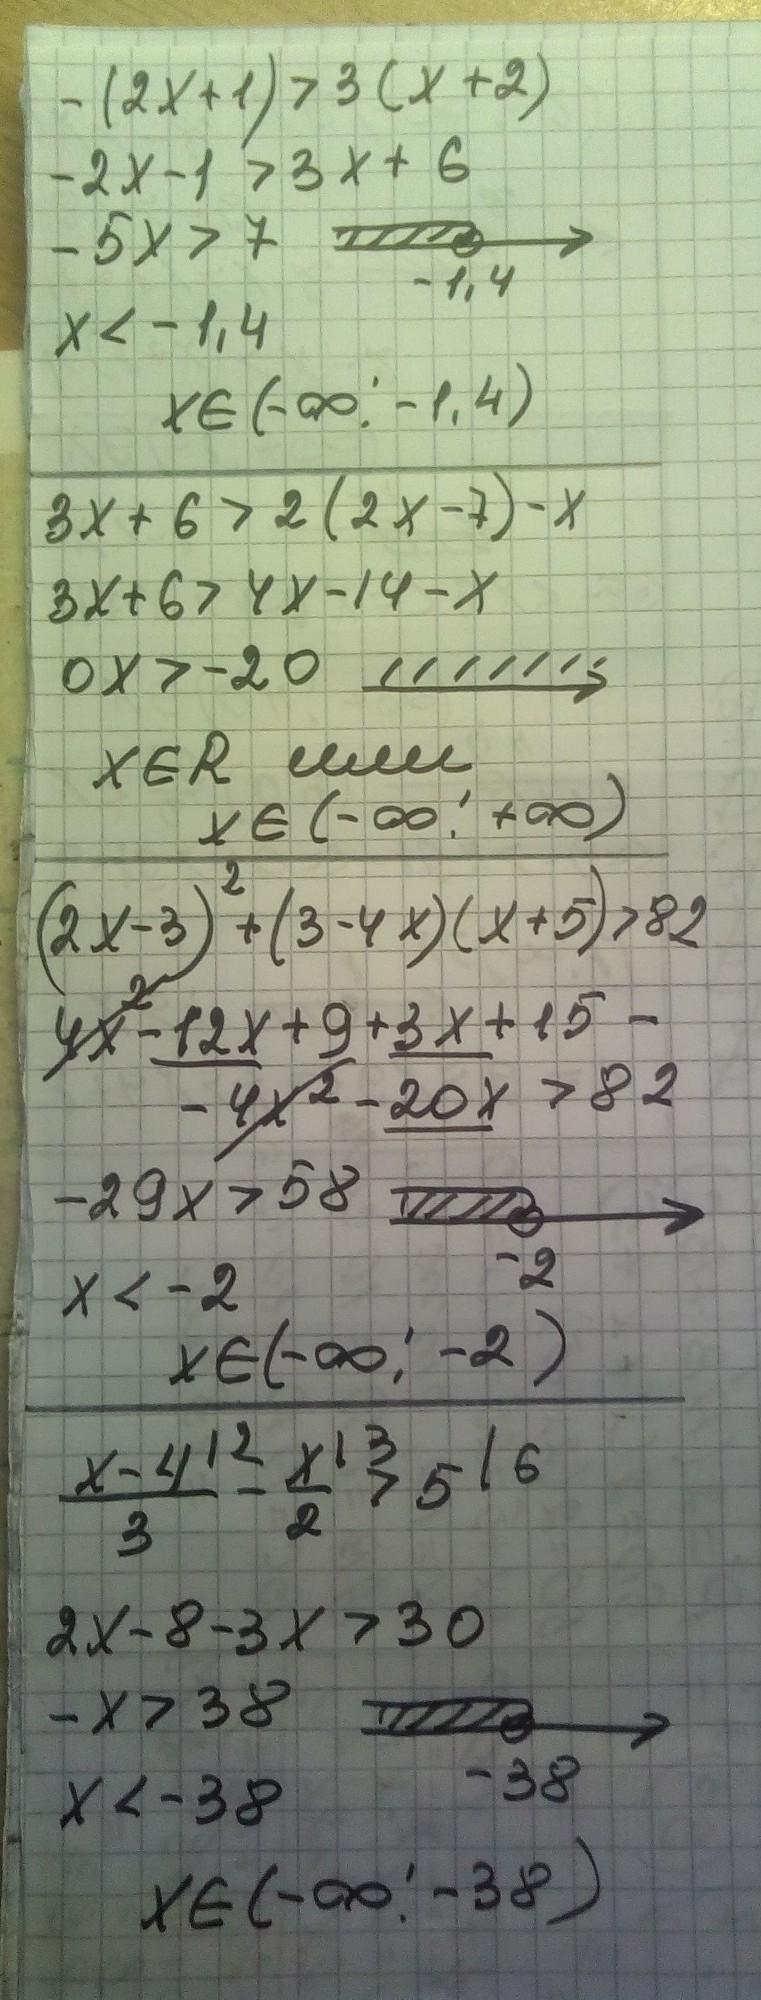 -(2x+1)>3(x+2)
-2x-1>3x+6
-5x>7
-1,4
x<-1,4
x∈(-∞;-1,4)
3x+6>2(2x-7)-x
3x+6>4x-14-x
0x>-20
x∈R или
x∈(-∞;+∞)
(2x-3)²+(3-4x)(x+5)>82
4x²-12x+9+3x+15-
-4x²-20x>82
-29x>58
-2
x<-2
x∈(-∞;-2)
x-4|2 x|3
― - ― >5|6
3 2
2x-8-3x>30
-x>38
-38
x<-38
x∈(-∞;-38)